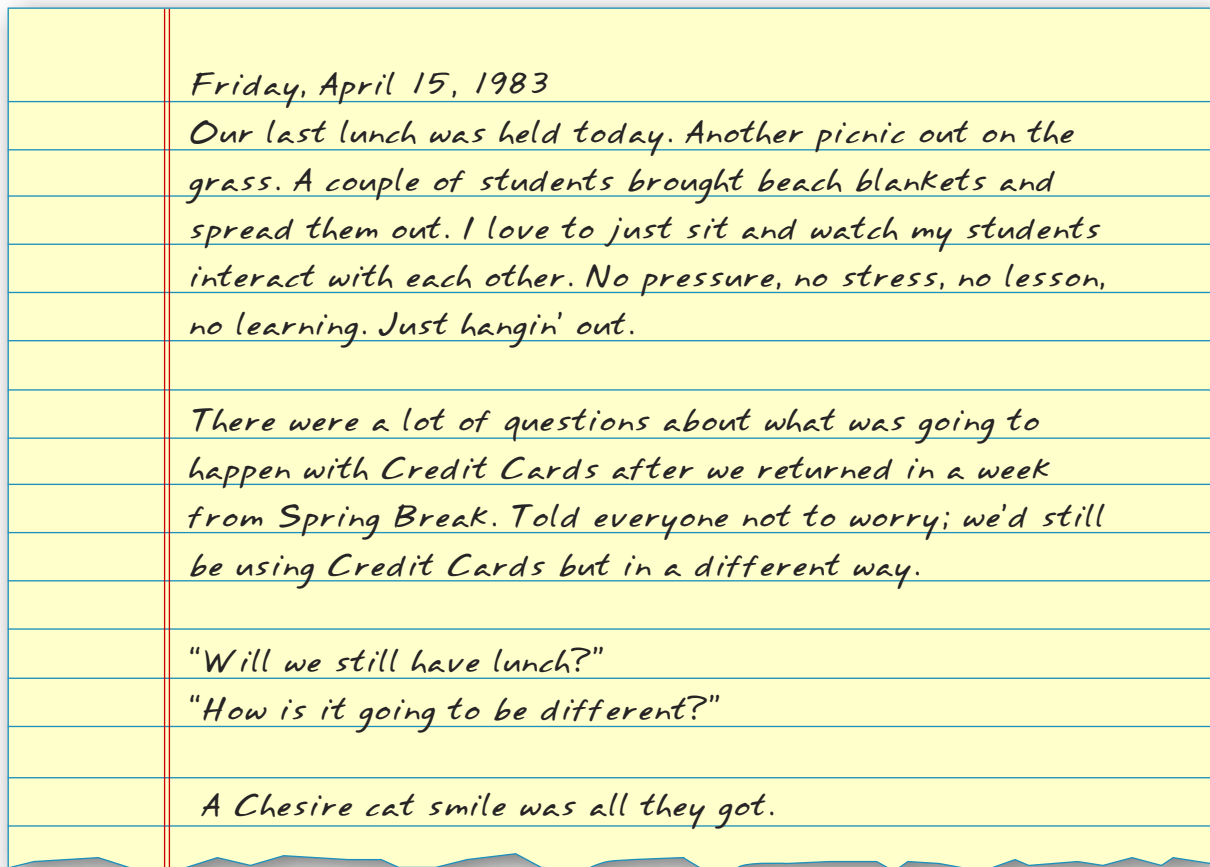 Friday, April 15, 1983
Our last lunch was held today. Another picnic out on the
grass. A couple of students brought beach blankets and
spread them out. I love to just sit and watch my students
interact with each other. No pressure, no stress, no lesson,
no learning. Just hangin' out.
There were a lot of questions about what was going to
happen with Credit Cards after we returned in a week
from Spring Break. Told everyone not to worry; we'd still
be using Credit Cards but in a different way.
"Will we still have lunch?"
"How is it going to be different?"
A Chesire cat smile was all they got.